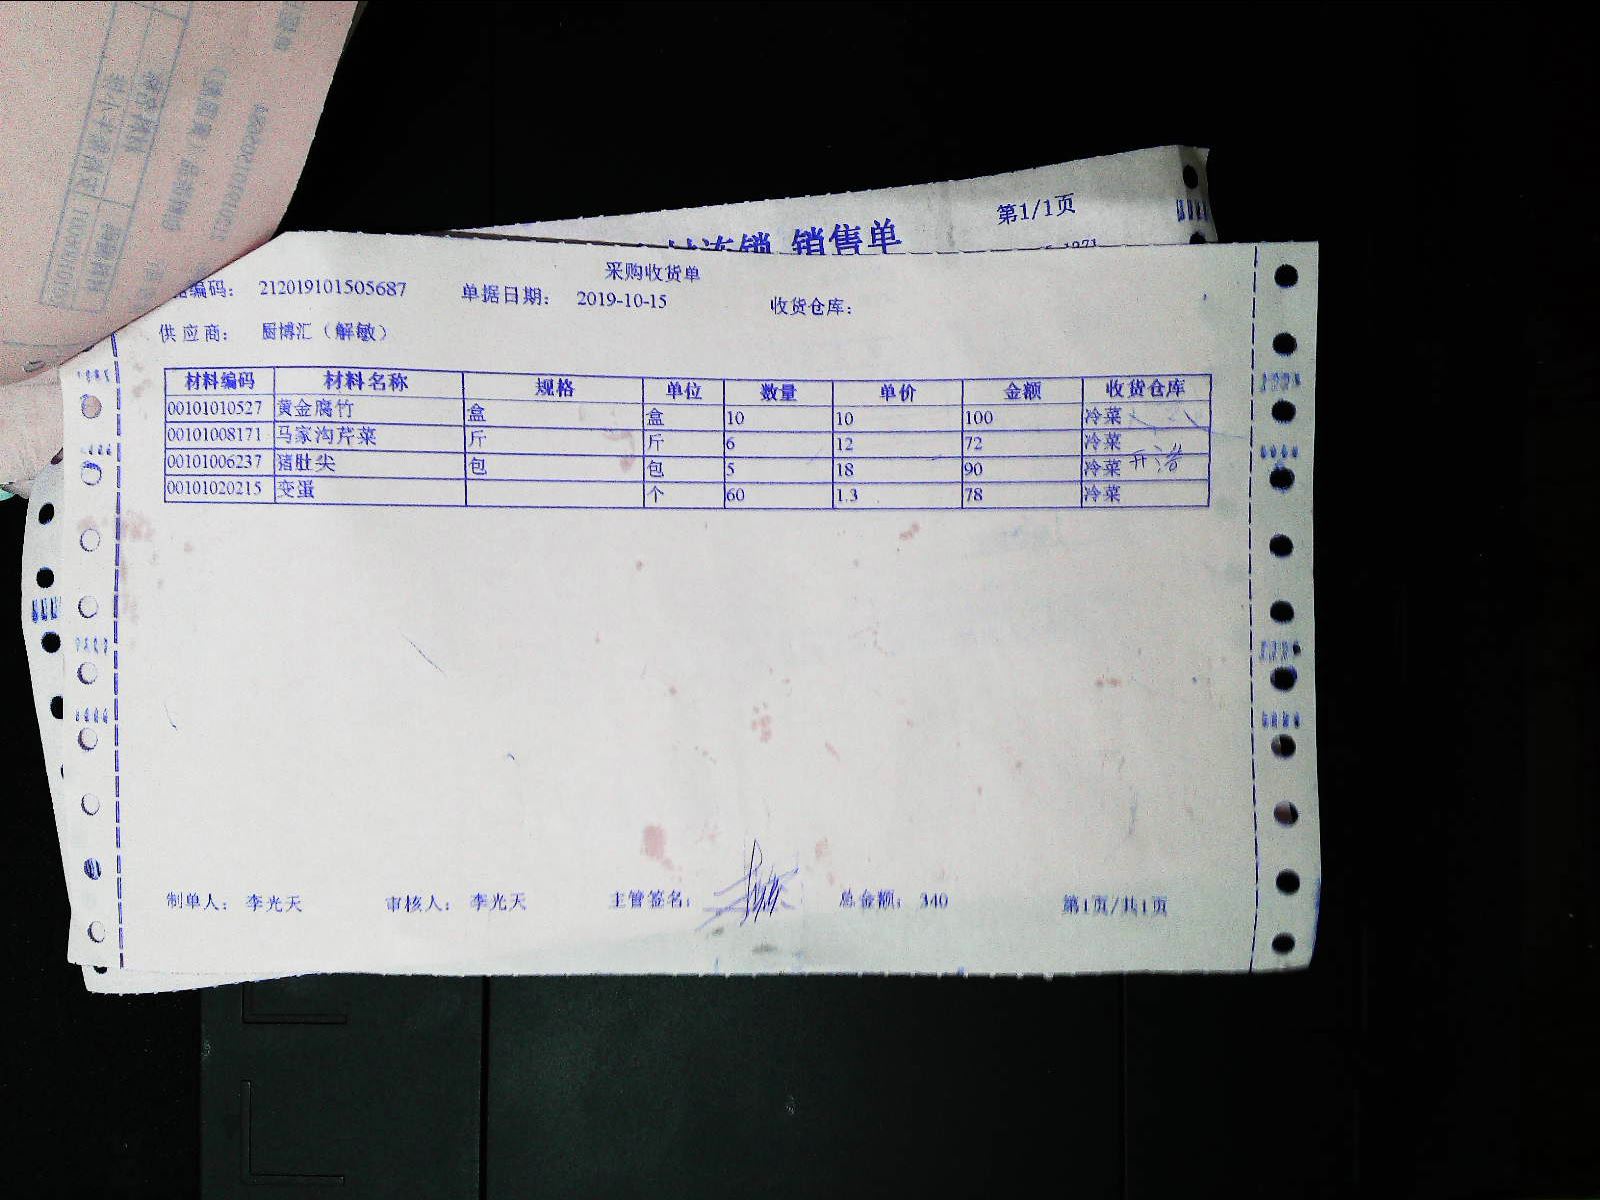 第1/1页
连锁 销售单
采购收货单
编码： 212019101505687 单据日期： 2019-10-15 收货仓库：
供应商： 厨博汇（解敏）
材料编码 材料名称 规格 单位 数量 单价 金额 收货仓库
00101010527 黄金腐竹 盒 盒 10 10 100 冷菜
00101008171 马家沟芹菜 斤 斤 6 12 72 冷菜
00101006237 猪肚尖 包 包 5 18 90 冷菜
00101020215 变蛋 个 60 1.3 78 冷菜
制单人： 李光天 审核人： 李光天 主管签名： 总金额： 340 第1页/共1页